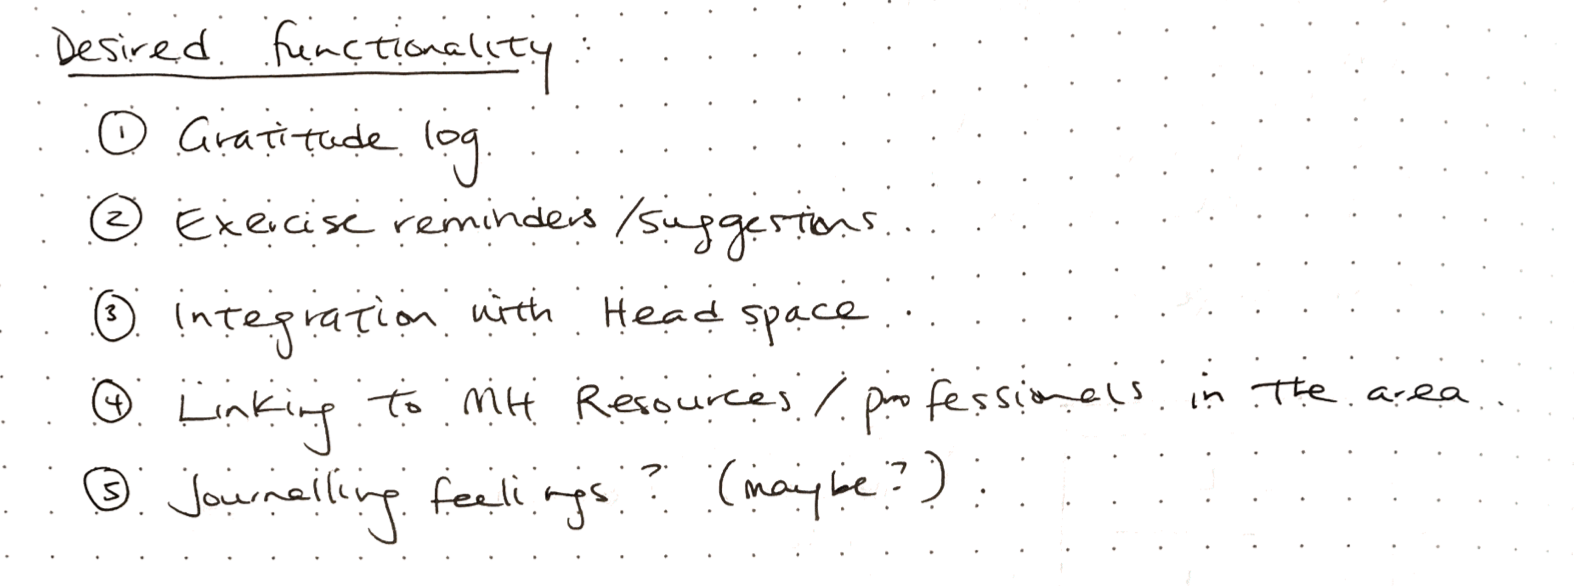 Desired functionality:
① Gratitude log
② Exercise reminders/suggestions
③ Integration with Headspace
④ Linking to MH Resources / professionals in the area
⑤ Journalling feelings? (maybe?)